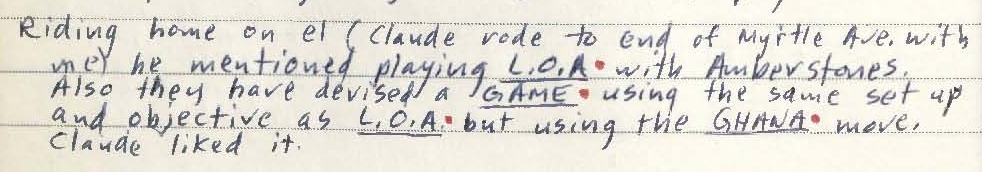 Riding home on el (Claude rode to end of Myrtle Ave. with
me) he mentioned playing L.O.A. with Amberstones.
Also they have devised a GAME using the same set up
and objective as L.O.A. but using the GHANA move.
Claude liked it.